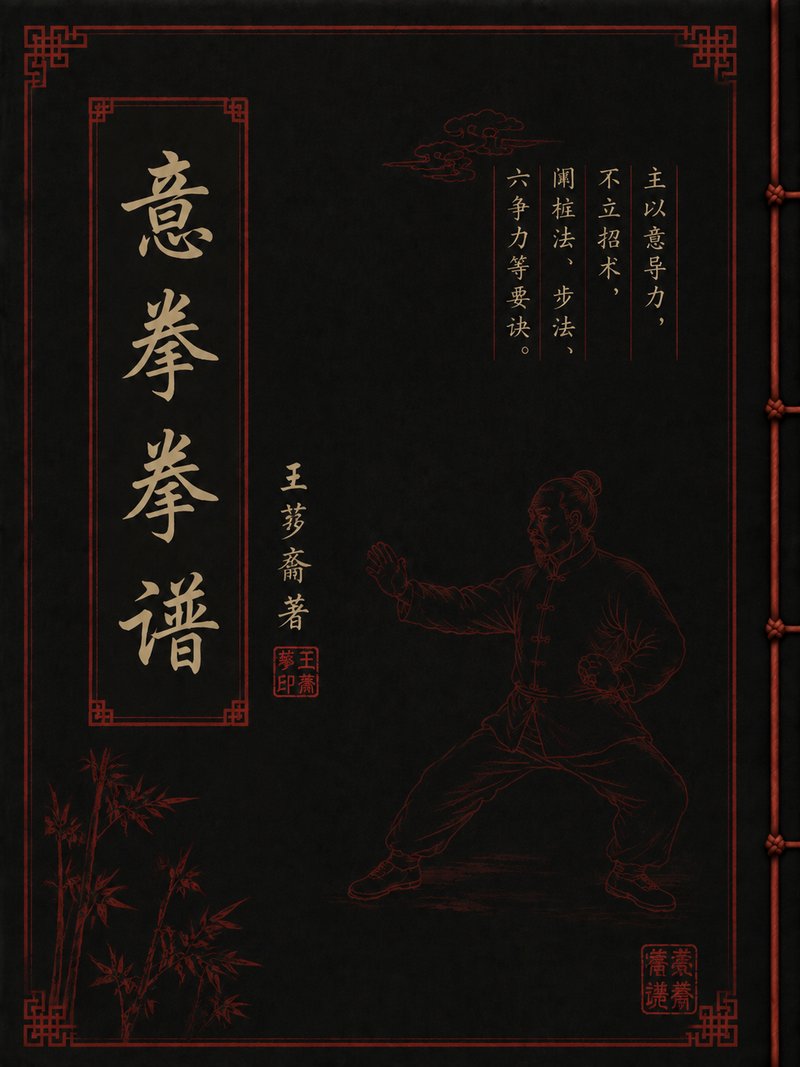 意拳拳谱
主以意导力，
不立招术，
阐桩法、步法、
六争力等要诀。
王芗齋著